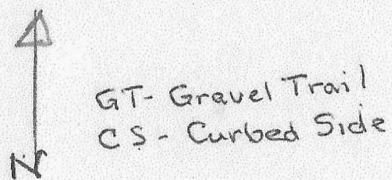 GT- Gravel Trail
CS - Curbed Side
N